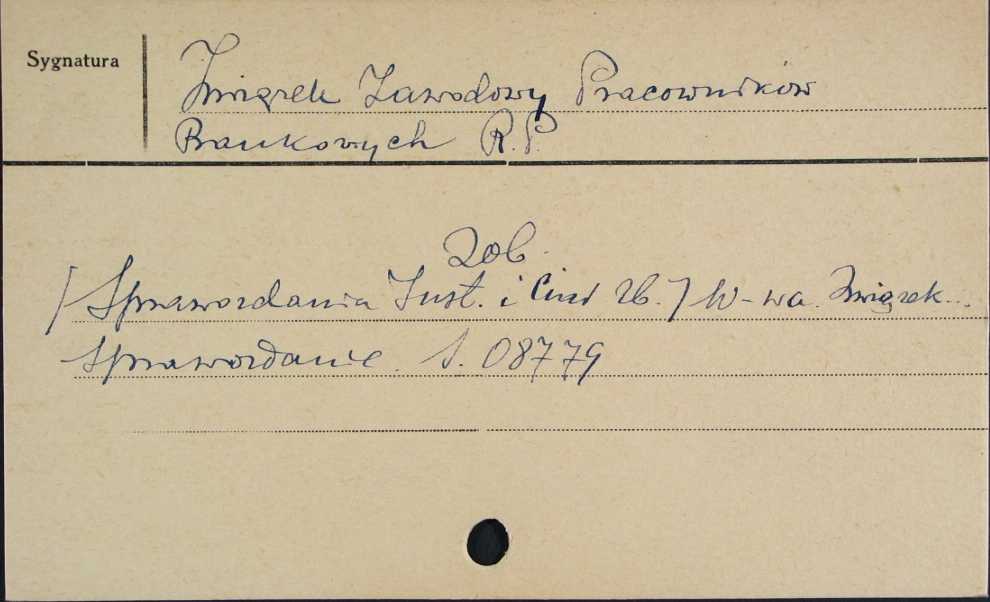 Sygnatura
Związek Zawodowy Pracowników
Bankowych R.P.
Zob.
[Sprawozdania Inst. i zb.] W-wa. Związek...
Sprawozdanie. S. 08779